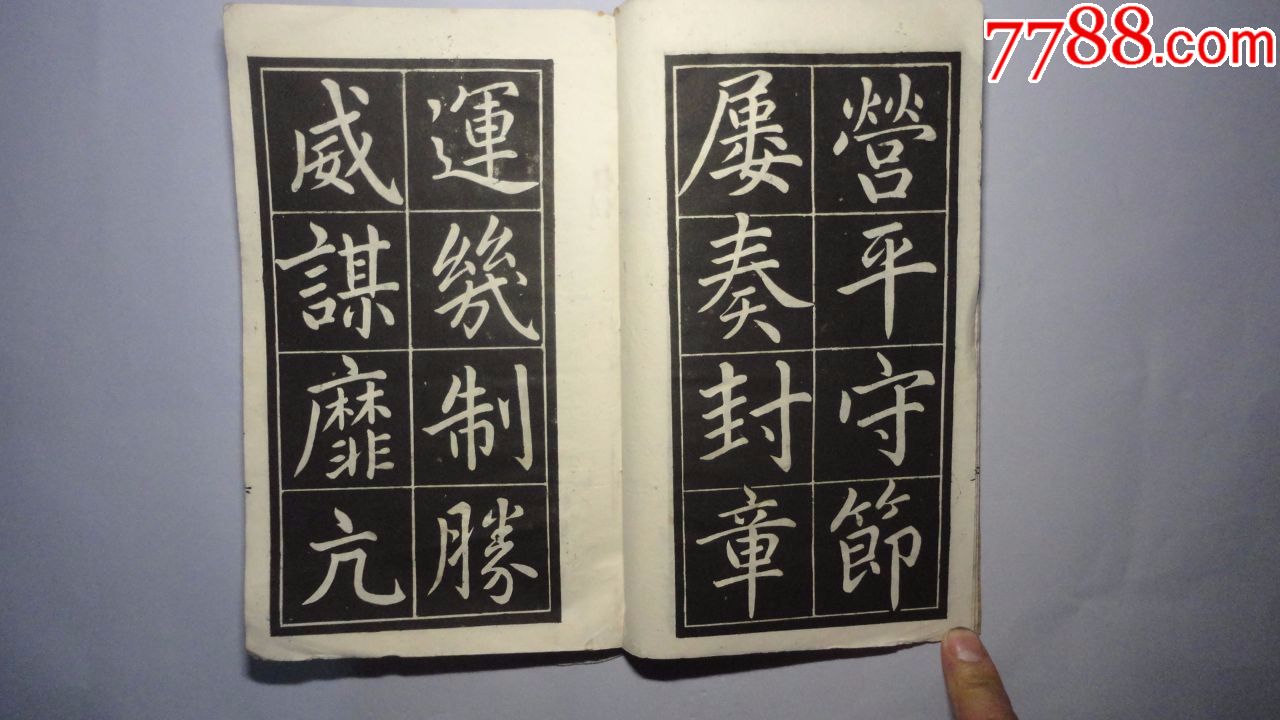 7788.com
營平守節
屢奏封章
運幾制勝
威謀靡亢